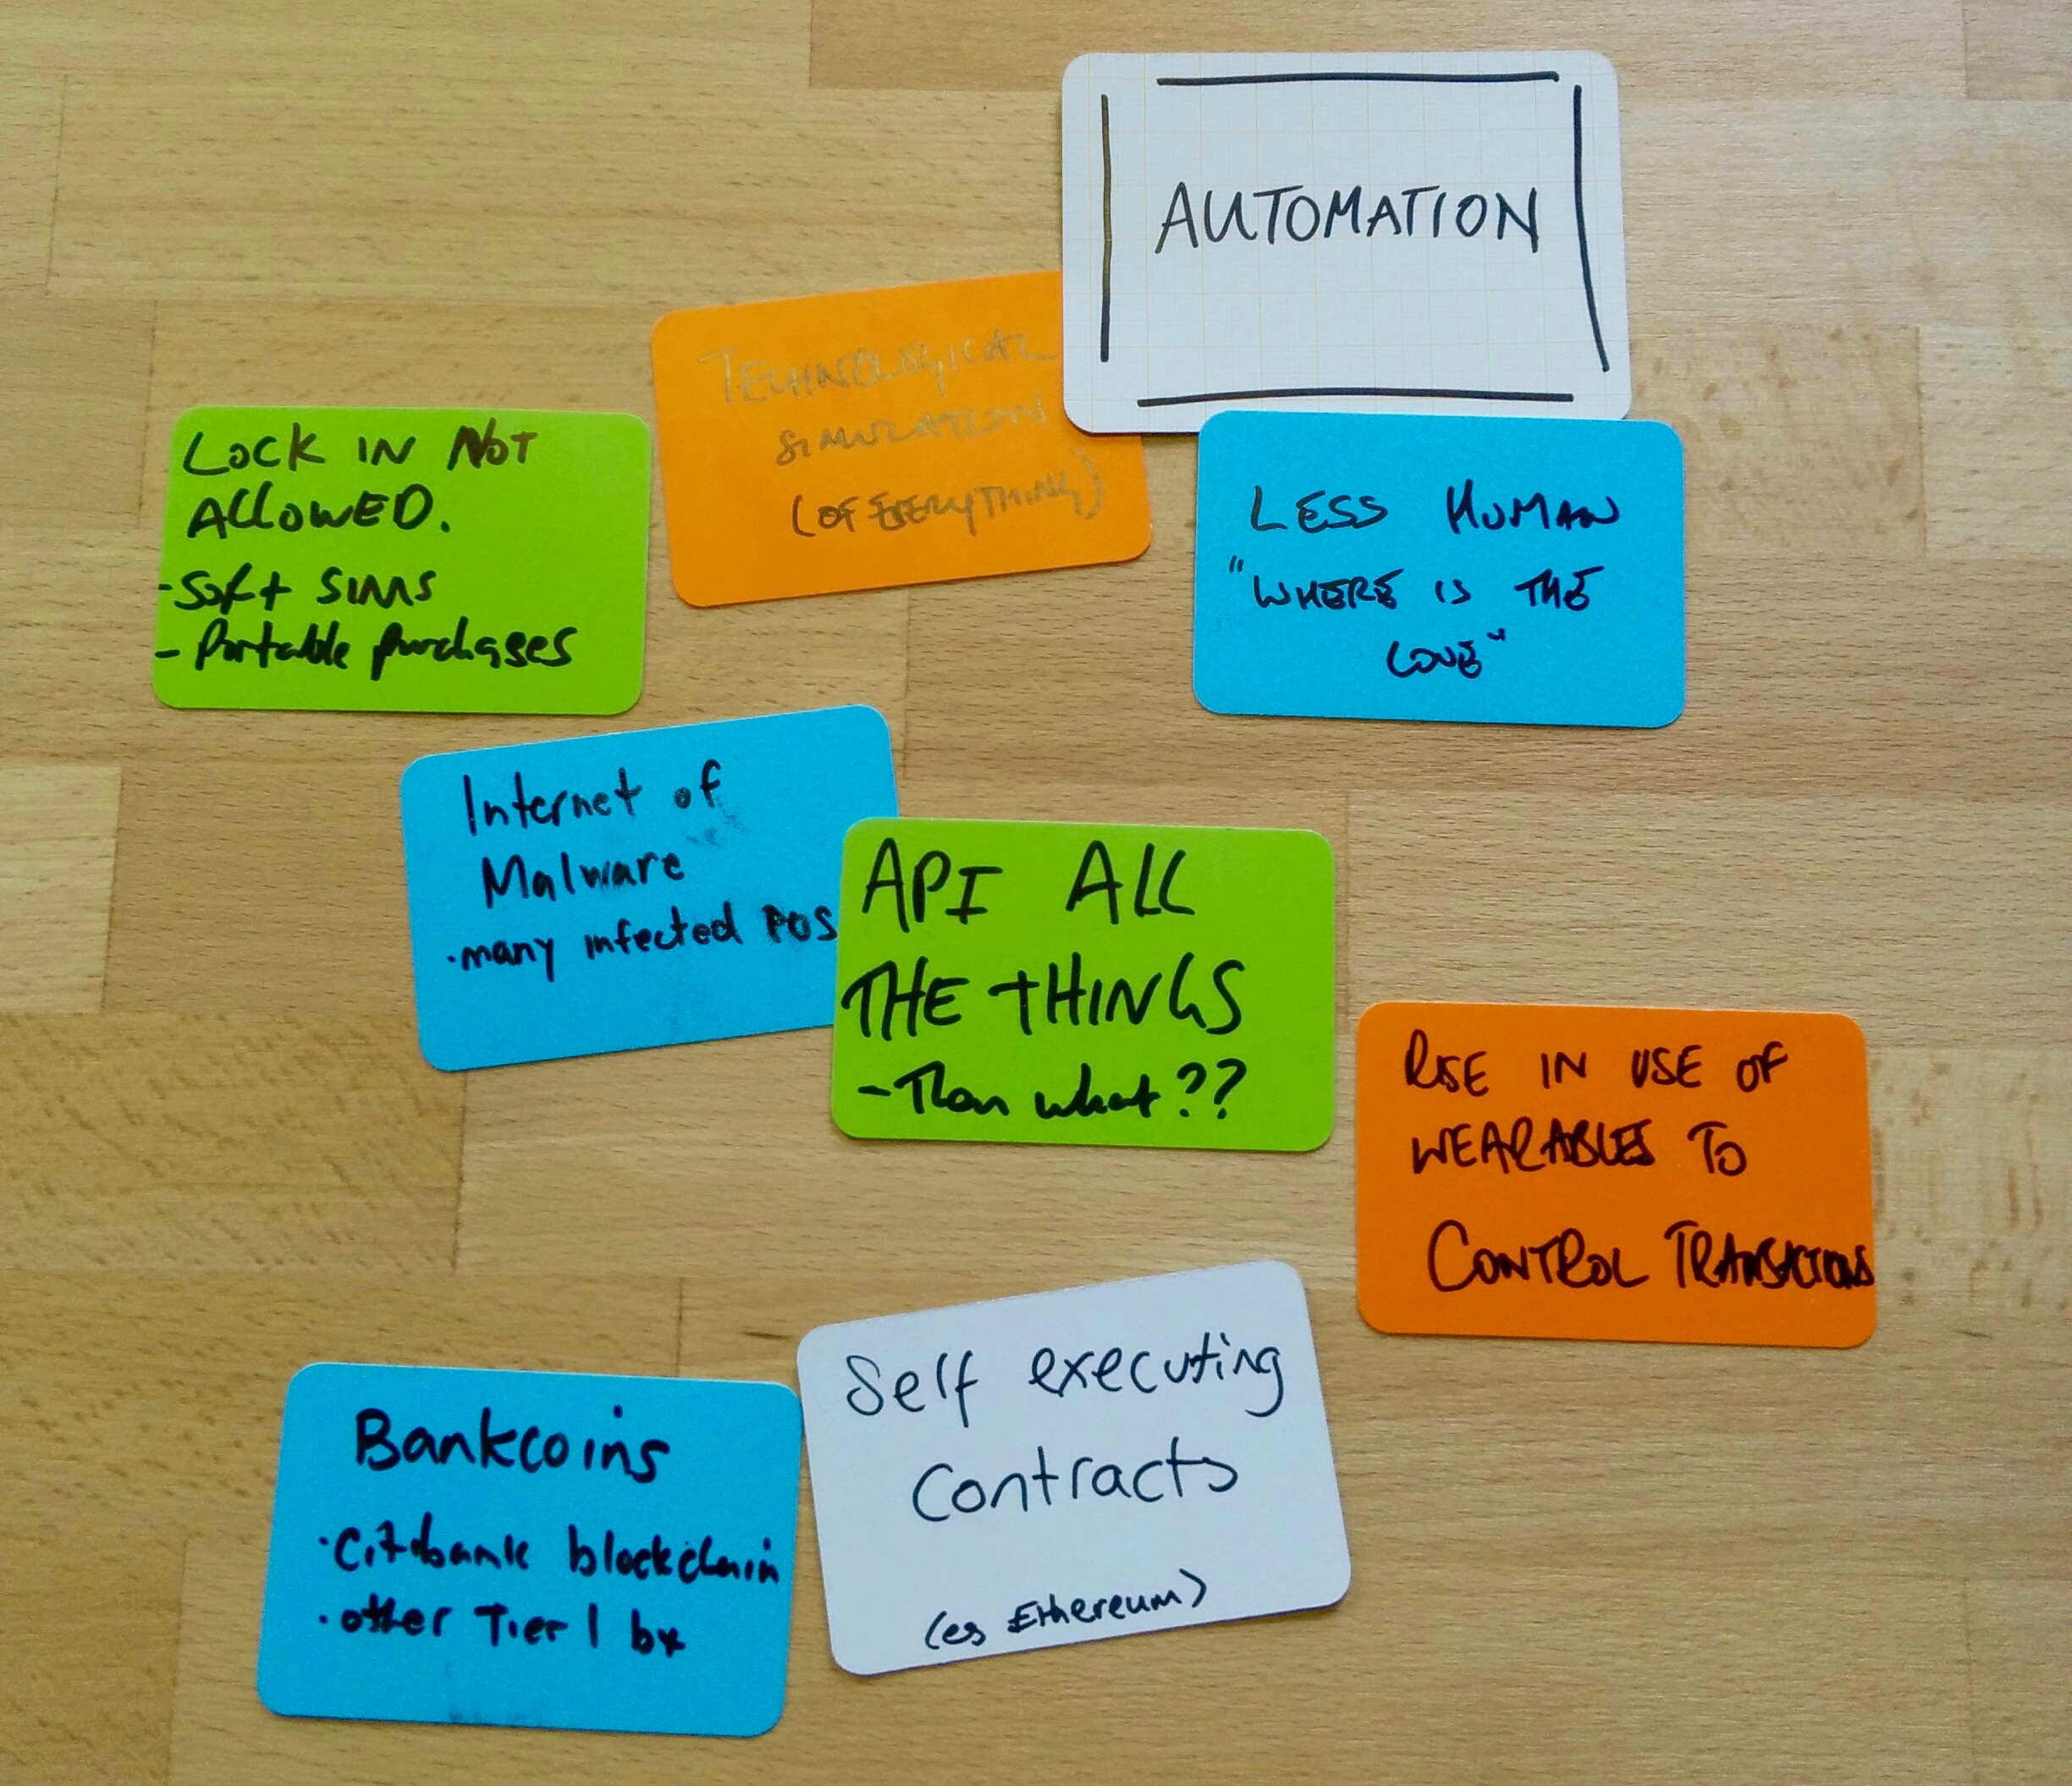 AUTOMATION
TECHNOLOGICAL
SIMULATION
(OF EVERYTHING)
LOCK IN NOT
ALLOWED.
- Soft SIMS
- Portable purchases
LESS HUMAN
"WHERE IS THE
LOVE"
Internet of
Malware
· many infected POS
API ALL
THE THINGS
- Then what??
RISE IN USE OF
WEARABLES TO
CONTROL TRANSACTIONS
Bankcoins
· Citibank blockchain
· other Tier 1 bx
Self executing
Contracts
(eg Ethereum)